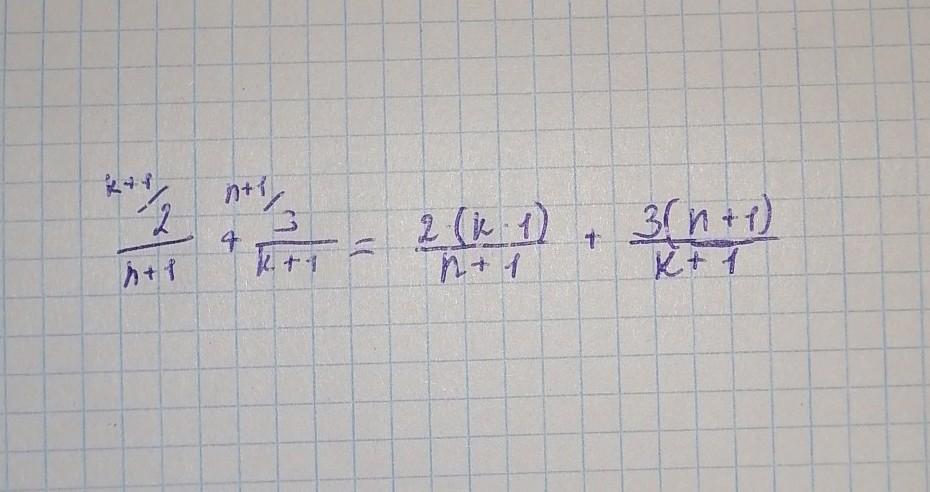 k+1/ n+1/
2/(n+1) + 3/(k+1) = 2(k·1)/(n+1) + 3(n+1)/(k+1)